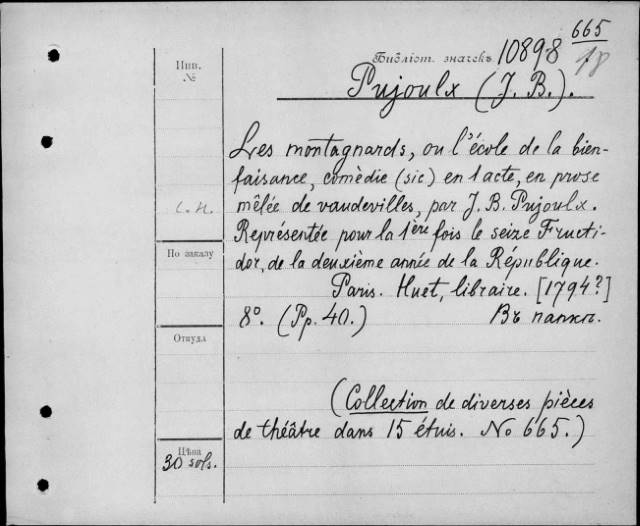 665
Библіот. значекъ 10898
18
Инв.
№
Pujoulx (J. B.).
Les montagnards, ou l'école de la bien-
faisance, comèdie (sic) en 1 acte, en prose
mêlée de vaudevilles, par J. B. Pujoulx.
Représentée pour la 1ère fois le seize Fructi-
dor, de la deuxième année de la République.
Paris. Huet, libraire. [1794?]
8°. (Pp. 40.) Въ папкѣ.
По заказу
Откуда
(Collection de diverses pièces
de théâtre dans 15 étuis. No 665.)
Цѣна
30 sols.